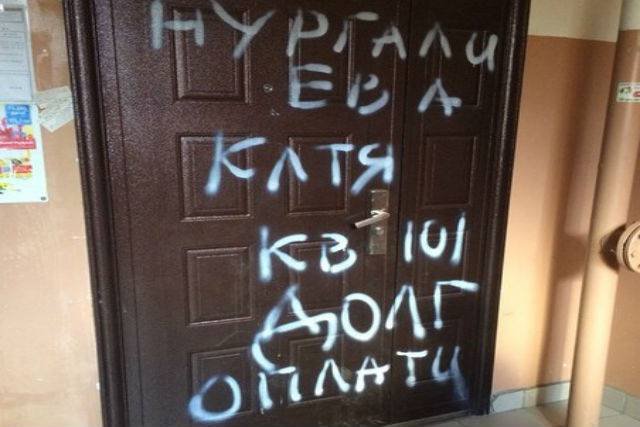 НУРГАЛИ
ЕВА
КАТЯ
КВ 101
ДОЛГ
ОПЛАТИ